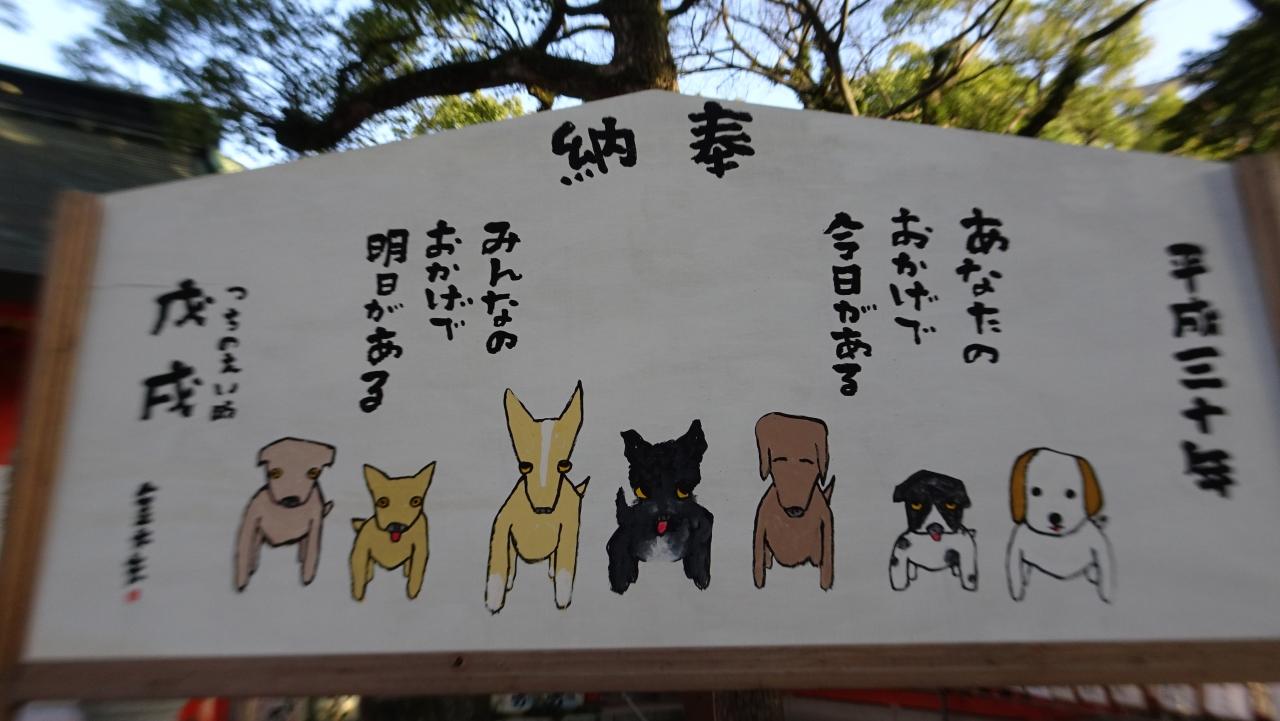 奉納
平成三十年
あなたの
おかげで
今日がある
みんなの
おかげで
明日がある
つちのえいぬ
戊戌